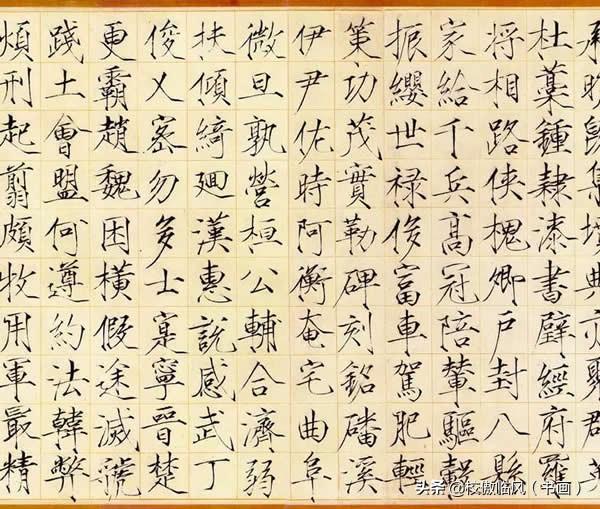 集墳典亦聚群
杜藁鍾隸漆書壁經府羅
将相路俠槐卿戶封八縣
家給千兵高冠陪輦驅轂
振纓世祿侈富車駕肥輕
策功茂實勒碑刻銘磻溪
伊尹佐時阿衡奄宅曲阜
微旦孰營桓公輔合濟弱
扶傾綺迴漢惠說感武丁
俊乂密勿多士寔寧晉楚
更霸趙魏困橫假途滅虢
踐土會盟何遵約法韓弊
煩刑起翦頗牧用軍最精
头条@校傲临风（书画）